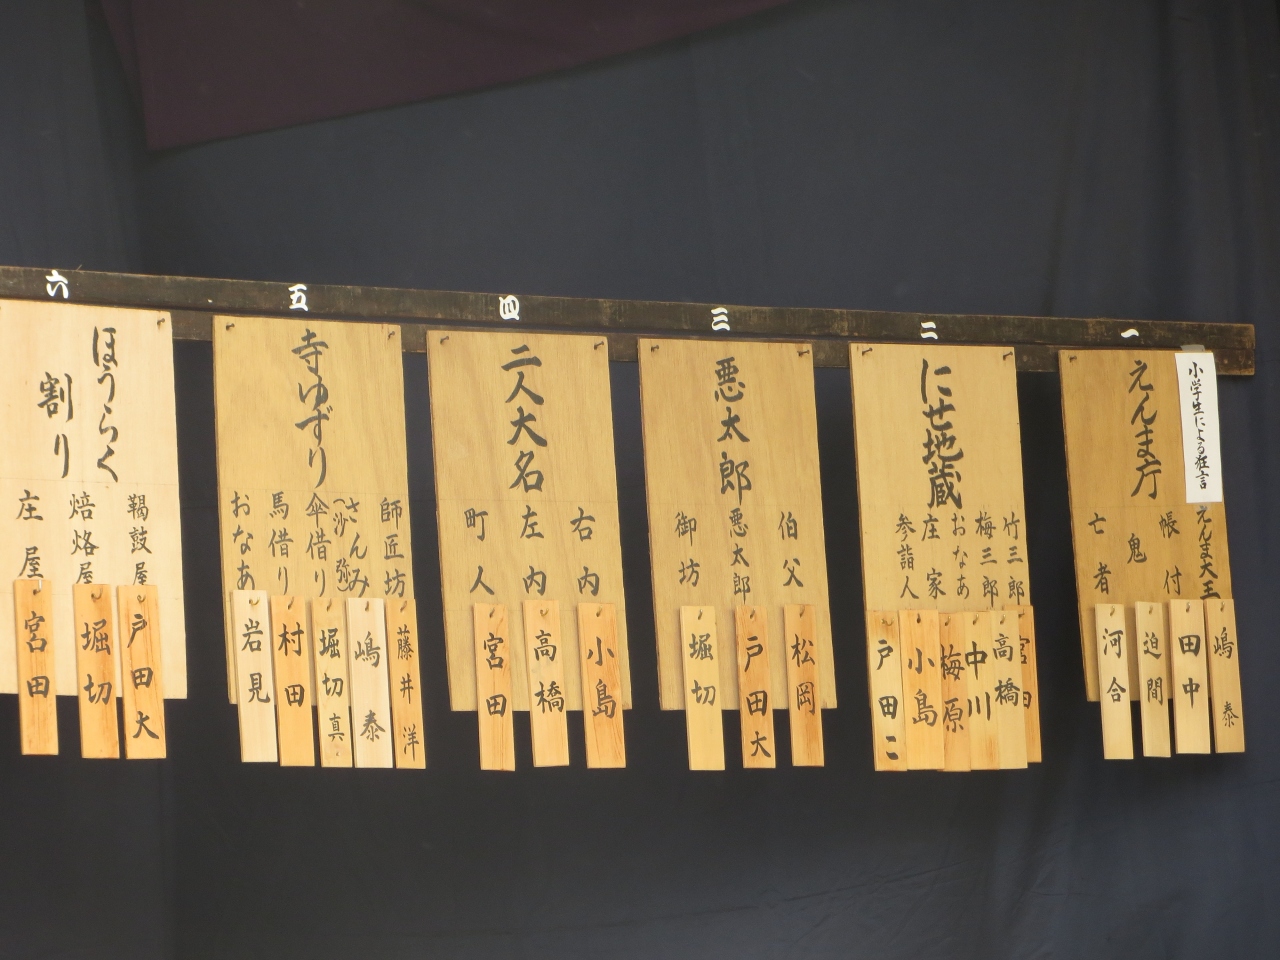 一
小学生による狂言
えんま庁
えんま大王
帳付
鬼
亡者
嶋泰
田中
迫間
河合
二
にせ地蔵
竹三郎
梅三郎
おなあ
庄家
参詣人
宮田
高橋
中川
梅原
小島
戸田こ
三
悪太郎
伯父
悪太郎
御坊
松岡
戸田大
堀切
四
二人大名
右内
左内
町人
小島
高橋
宮田
五
寺ゆずり
師匠坊
さんみ
(沙弥)
傘借り
馬借り
おなあ
藤井洋
嶋泰
堀切真
村田
岩見
六
ほうらく
割り
鞨鼓屋
焙烙屋
庄屋
戸田大
堀切
宮田